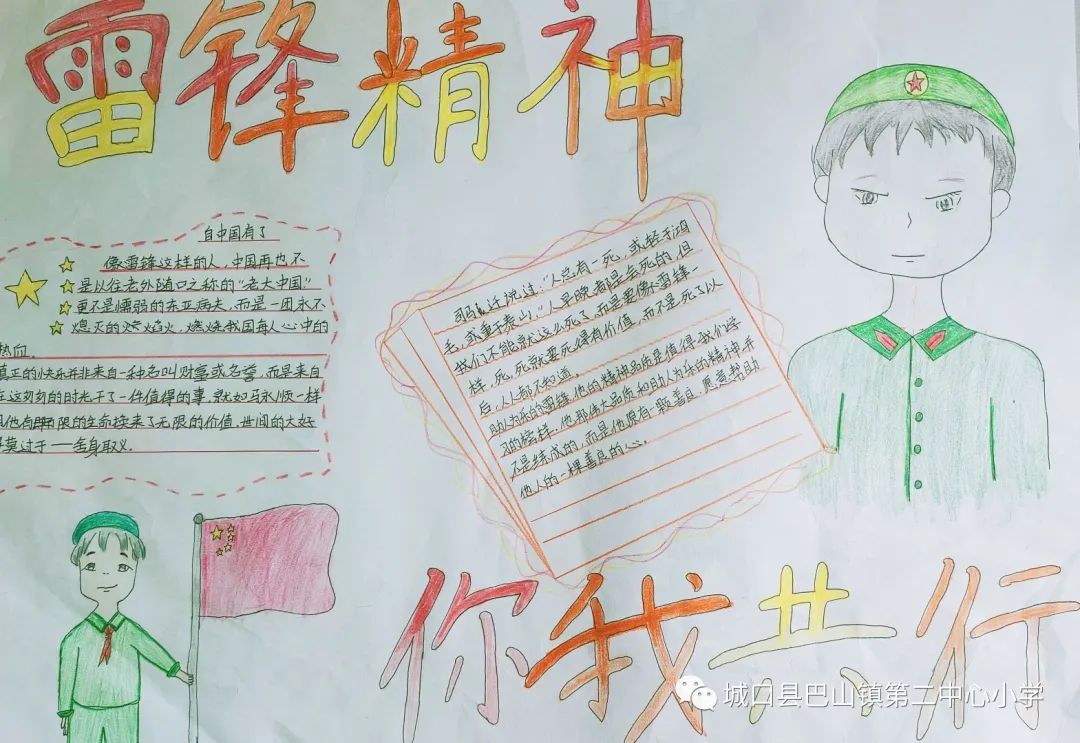 雷锋精神
自中国有了
像雷锋这样的人,中国再也不
是以往老外随口之称的“老大中国”
更不是懦弱的东亚病夫,而是一团永不
熄灭的 焰火,燃烧我国每人心中的
热血.
真正的快乐并非来自一种名叫财富或名誉,而是来自
在这匆匆的时光干了一件值得的事.就如
他有限的生命换来了无限的价值.世间的大好
莫过于——舍身取义.
司马迁说过:“人总有一死,或轻于鸿
毛,或重于泰山.”人早晚都是会死的,但
我们不能就这么死了,而是要像雷锋一
样,死,死就要死得有价值,而不是死了以
后,人人都不知道.
助人为乐的雷锋,他的精神品质是值得我们学
习的榜样.他那伟大品质和助人为乐的精神并
不是练成的,而是他原有一颗善良,愿意帮助
他人的一棵善良的心.
你我共行
城口县巴山镇第二中心小学